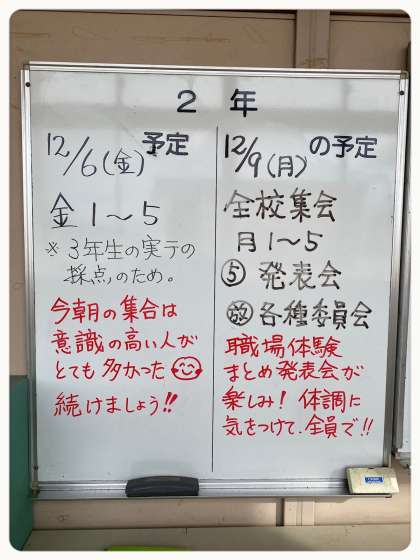 2年
12/6(金) 予定
金1〜5
※3年生の実テの
採点のため。
今朝の集合は
意識の高い人が
とても多かった
続けましょう!!
12/9(月) の予定
全校集会
月1〜5
⑤ 発表会
放 各種委員会
職場体験
まとめ発表会が
楽しみ! 体調に
気をつけて、全員で!!